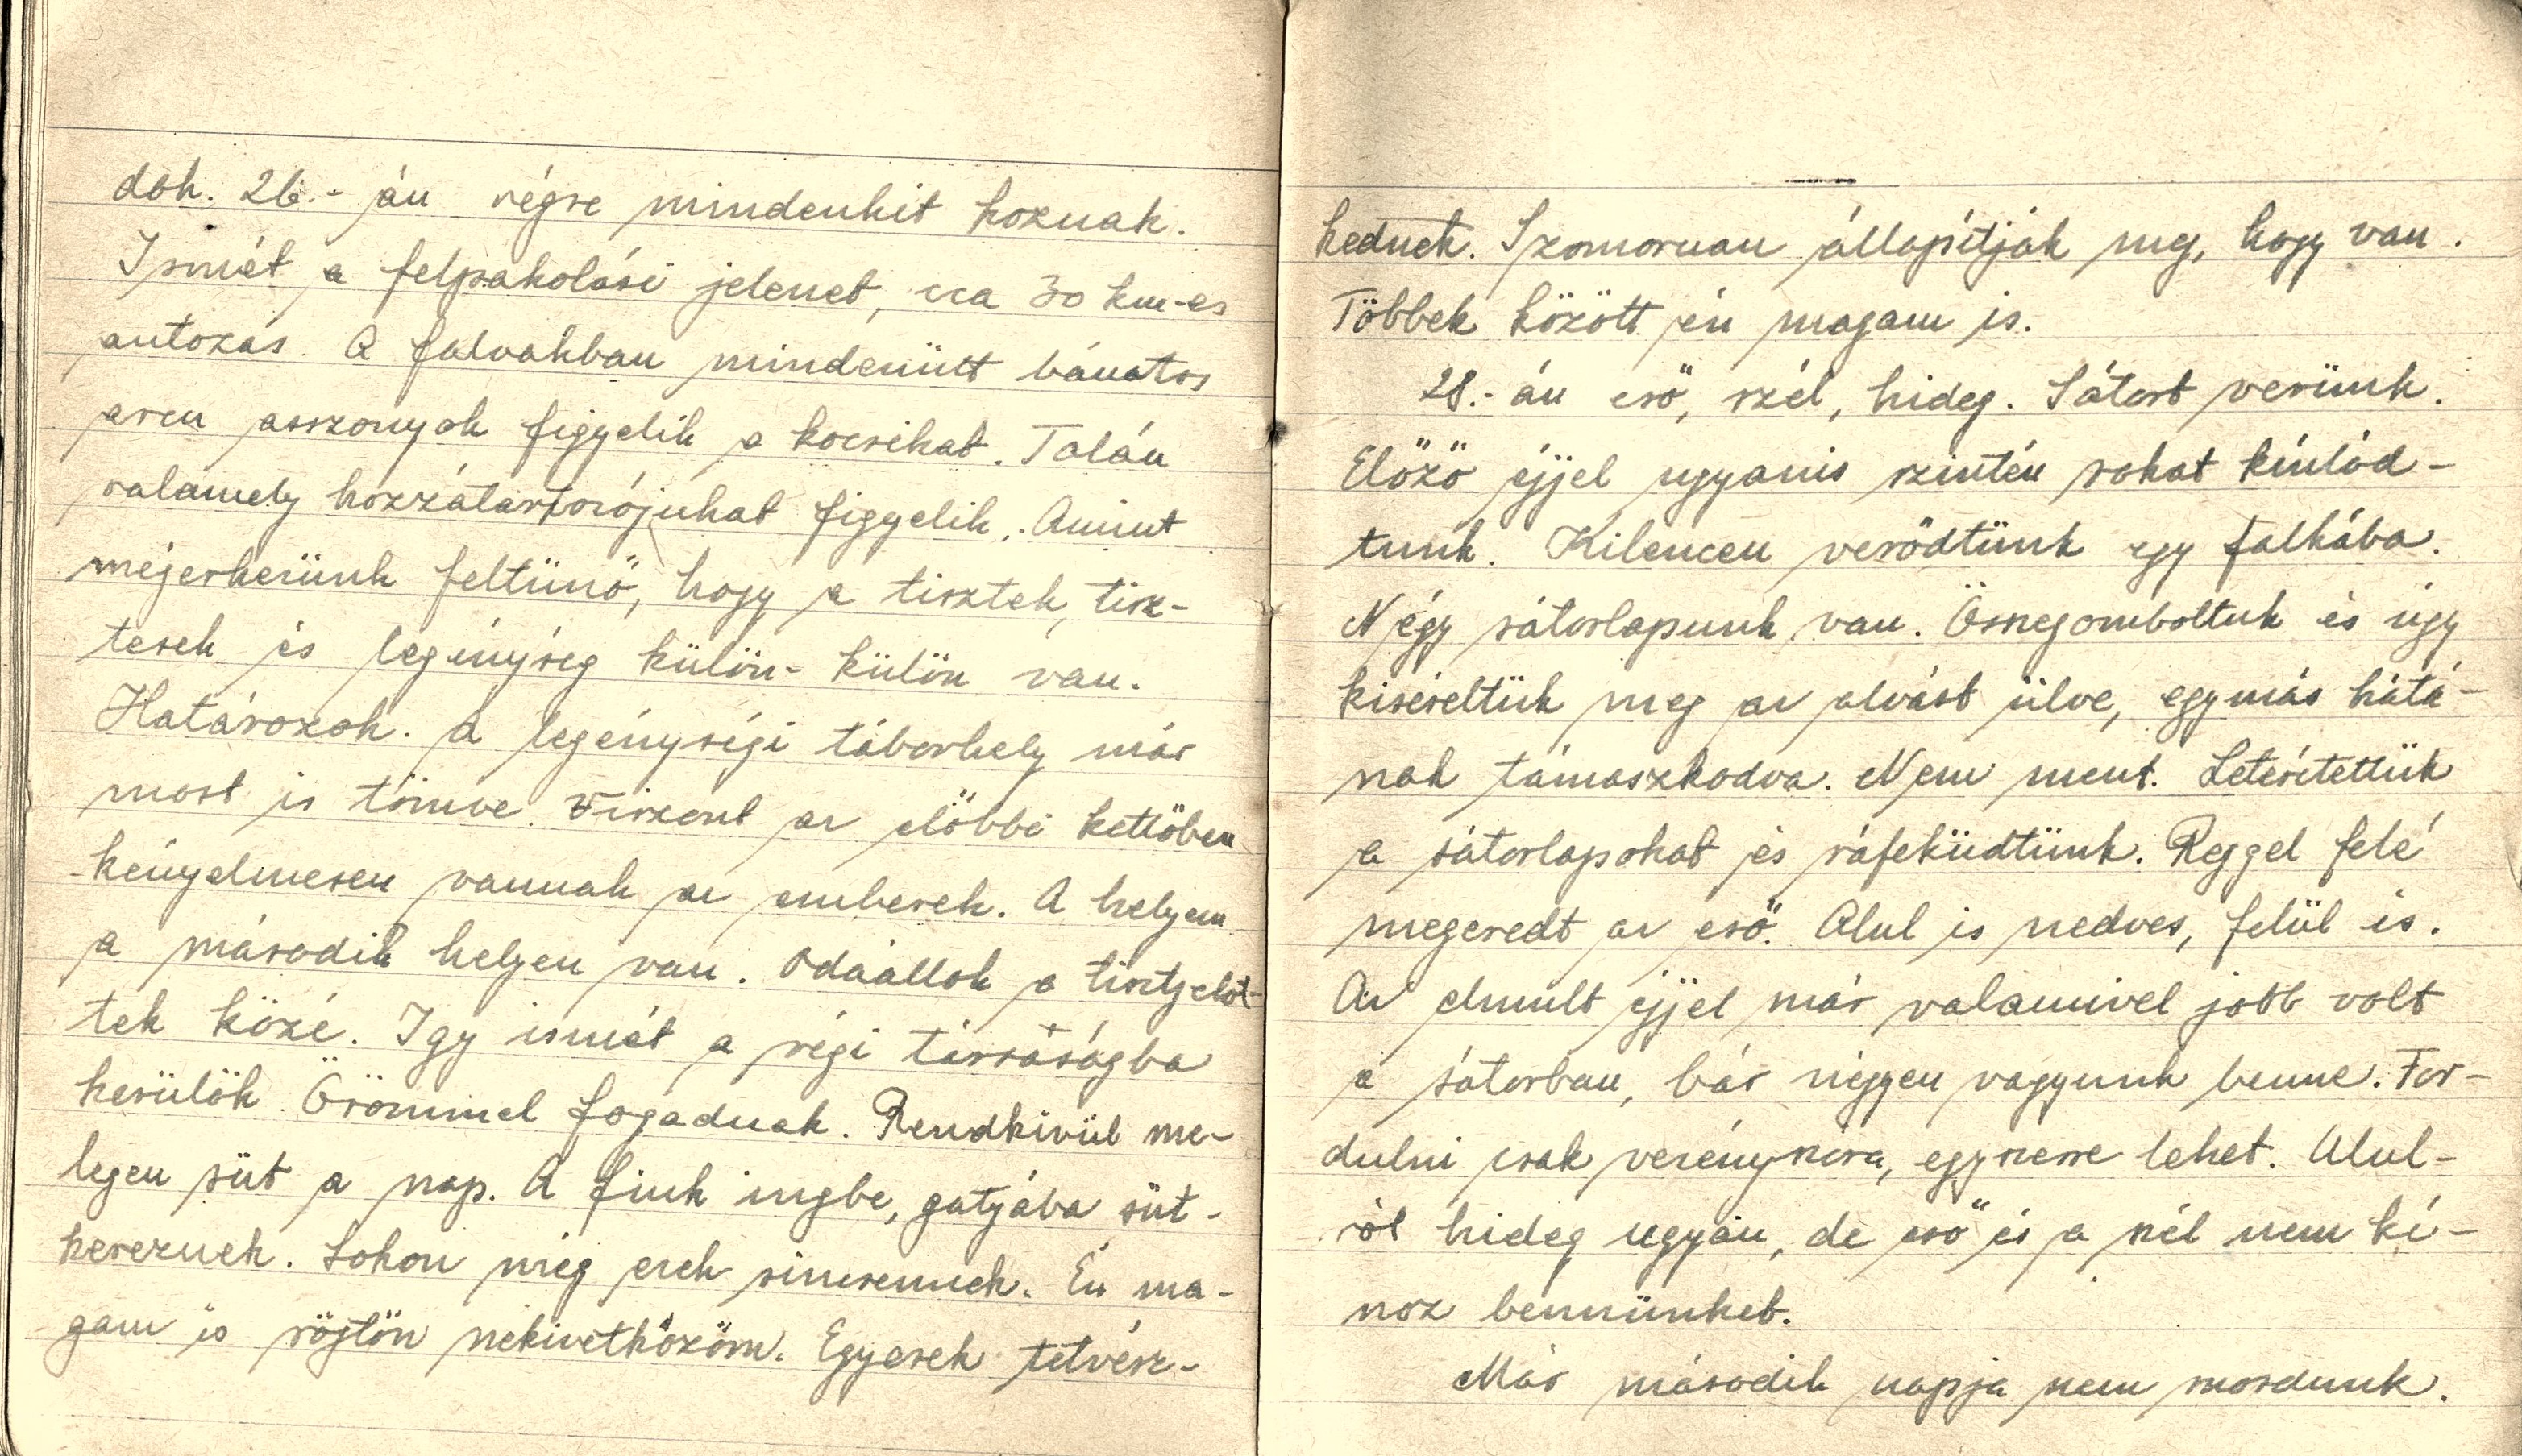 dök. 26.-án végre mindenkit hoznak.
Ismét a felpakolási jelenet, cca 30 km-es
autozás. A falvakban mindenütt bánatos
arcu asszonyok figyelik a kocsikat. Talán
valamely hozzátartozójukat figyelik. Amint
megérkezünk feltünő, hogy a tisztek, tisz-
tesek és legénység külön-külön van.
Határozok. A legénységi táborhely már
most is tömve. Viszont az előbbi kettőben
kényelmesen vannak az emberek. A helyem
a második helyen van. Odaállok a tisztjelöl-
tek közé. Igy ismét a régi társaságba
kerülök. Örömmel fogadnak. Rendkivül me-
legen süt a nap. A fiuk ingbe, gatyába süt-
kereznek. Sokon még ezek sincsennek. Én ma-
gam is röjtön nekivetkőzöm. Egyesek tetvész-
kednek. Szomoruan állapítják meg, hogy van.
Többek között én magam is.
28.-án eső, szél, hideg. Sátort verünk.
Előző éjjel ugyanis szintén sokat kínlód-
tunk. Kilencen verődtünk egy falkába.
Négy sátorlapunk van. Össegomboltuk és úgy
kiséreltük meg az alvást ülve, egymás hátá-
nak támaszkodva. Nem ment. Leterítettük
a sátorlapokat és ráfeküdtünk. Reggel felé
megeredt az eső. Alul is nedves, felül is.
Az elmult éjjel már valamivel jobb volt
a sátorban, bár négyen vagyunk benne. For-
dulni csak vezényszóra, egyszerre lehet. Alul-
ról hideg ugyan, de eső és a szél nem kí-
noz bennünket.
Már második napja nem mosdunk.